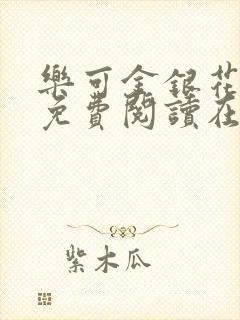 樂可金銀花
免費閱讀在
紫木瓜